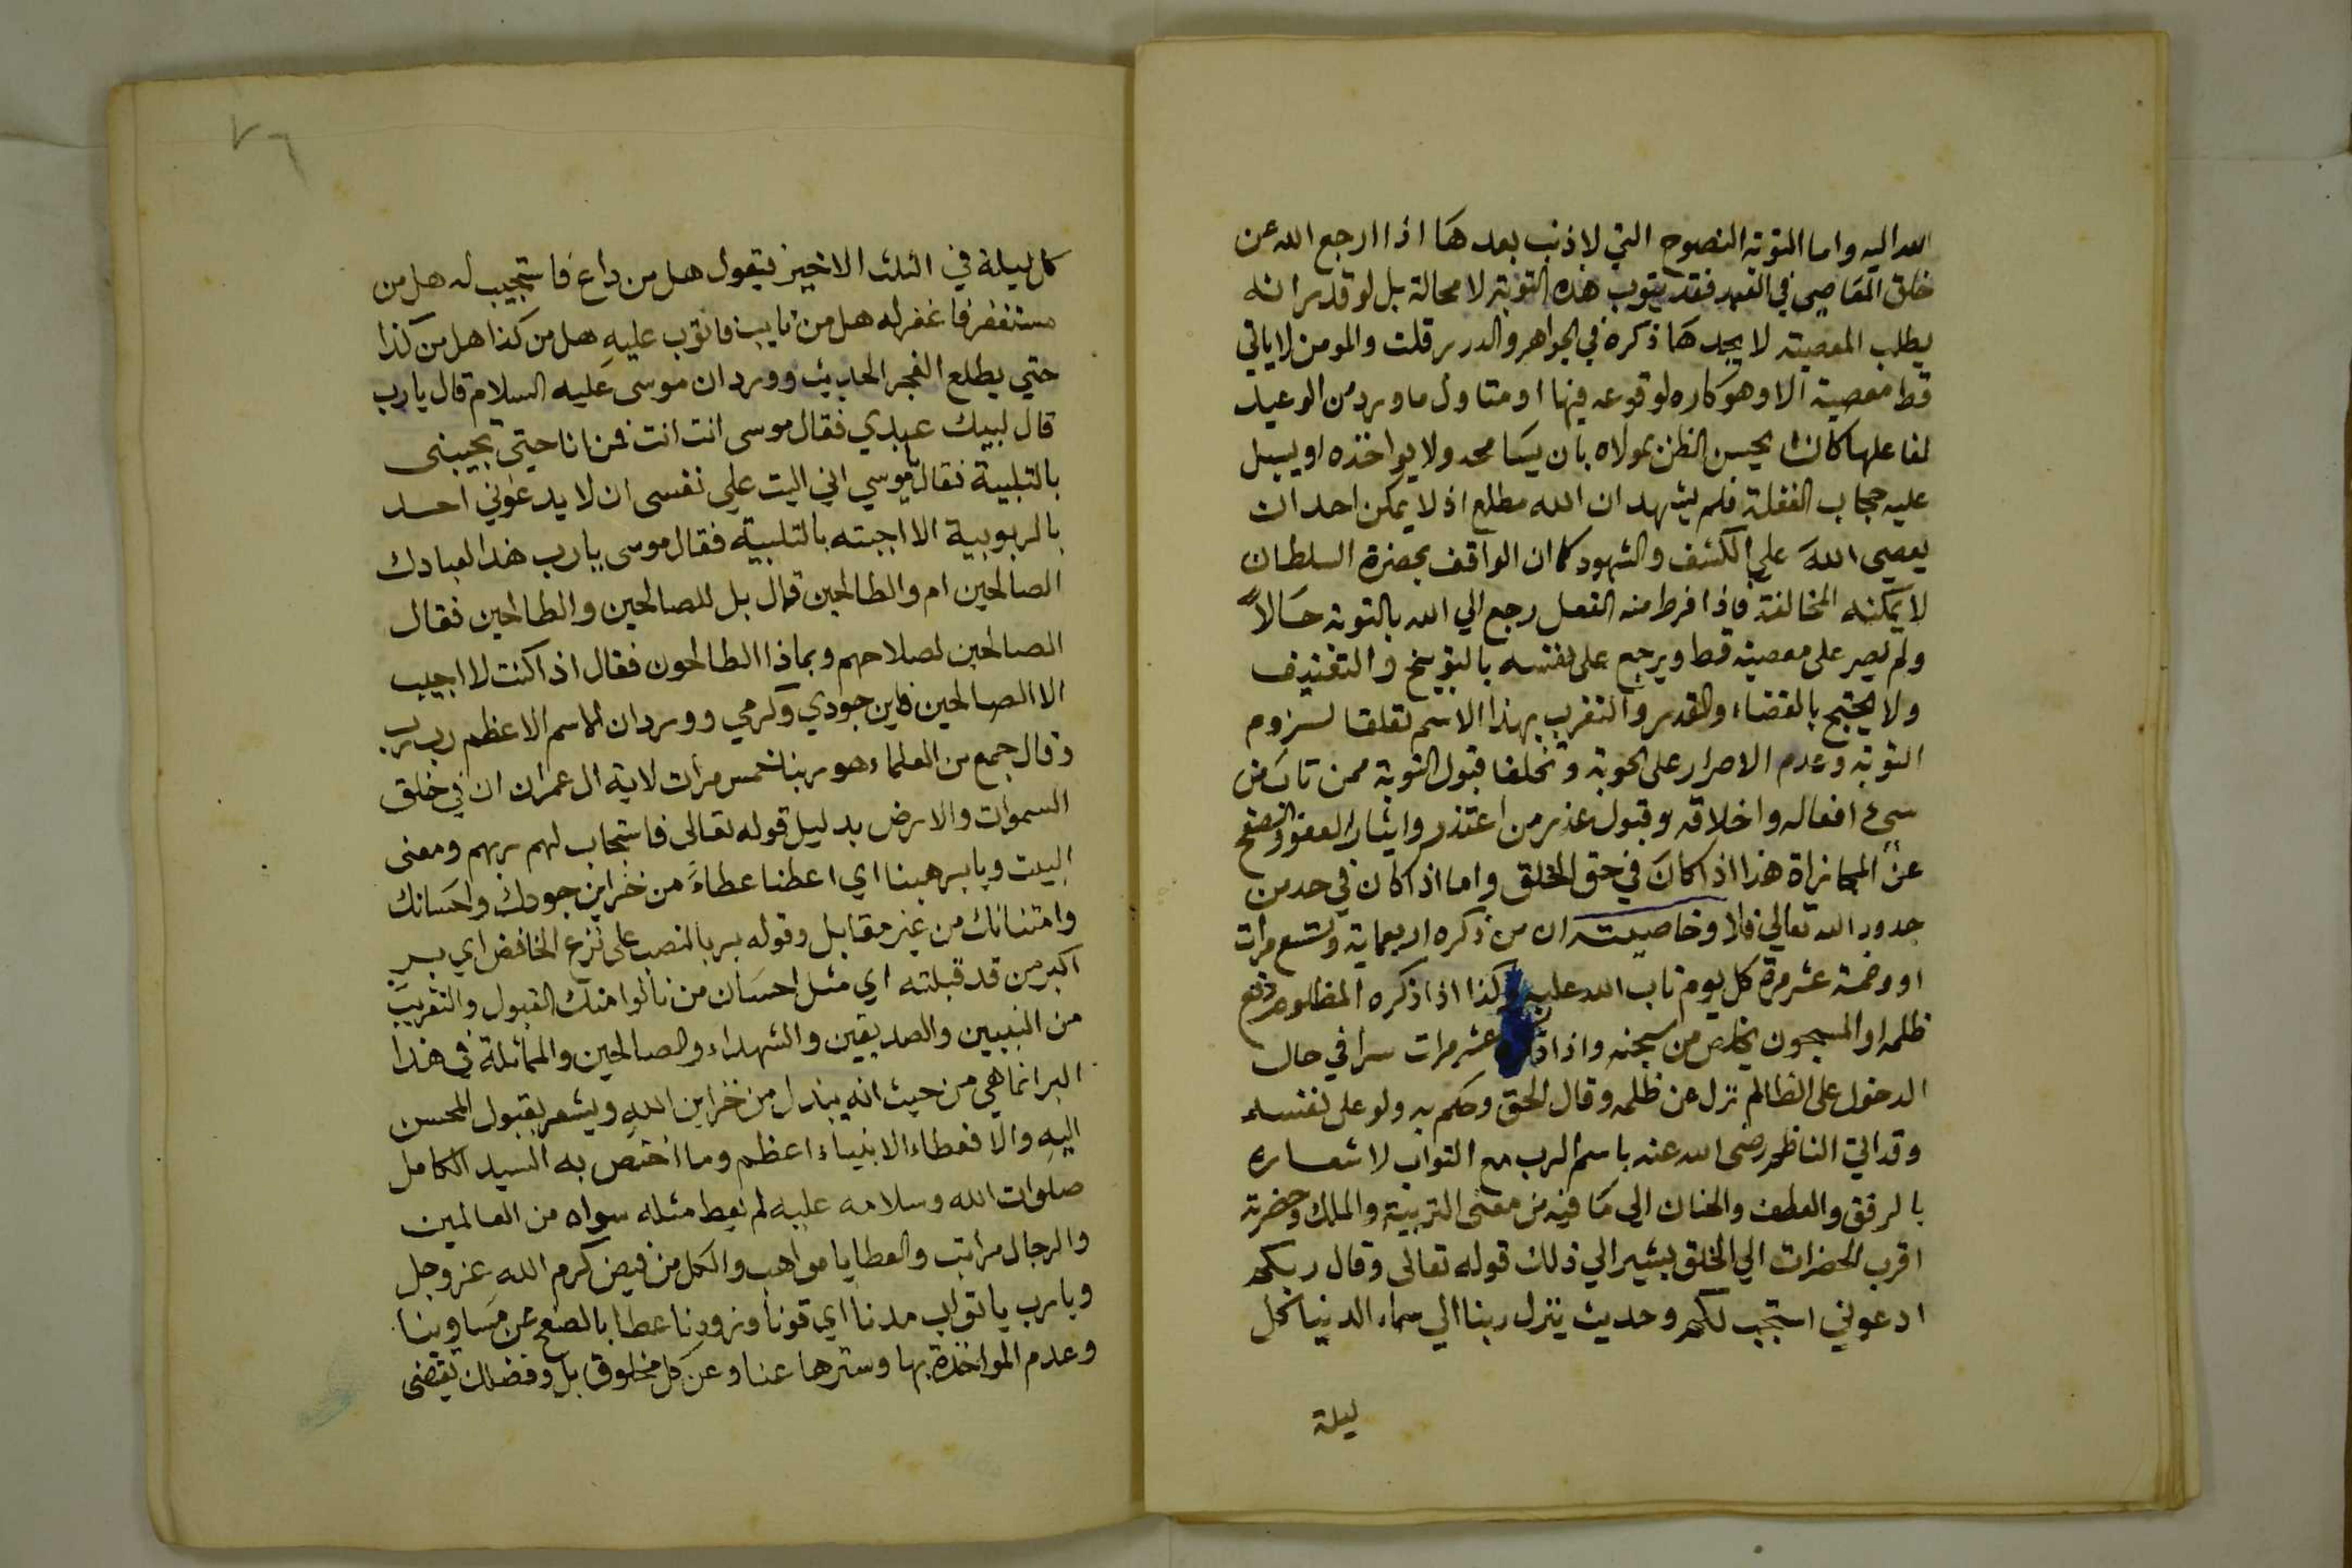 الله اليه واما التوبة النصوح التي لا ذنب بعدها اذا ارجع الله عن
خلق المعاصي في العبد فقد يتوب هذه التوبة لا محالة بل لو قدر انه
يطلب المعصية لا يجدها ذكره في الجواهر والدرر قلت والمومن لا ياتي
قط معصية الا وهو كاره لوقوعه فيها او متاول ما ورد من الوعيد
لفاعلها كان يحسن الظن بمولاه بان يسامحه ولا يواخذه او يسبل
عليه حجاب الغفلة فلم يشهد ان الله مطلع اذ لا يمكن احد ان
يعصي الله علي الكشف والشهود كما ان الواقف بحضرة السلطان
لا يمكنه المخالفة فاذا فرط منه الفعل رجع الي الله بالتوبة حالاً
ولم يصر على معصية قط ويرجع على نفسه بالتوبيخ والتفنيف
ولا يحتج بالقضاء والقدر والتقرب بهذا الاسم تعلقا لزوم
التوبة وعدم الاصرار على الحوبة وتخلقا قبول التوبة ممن تاب من
سيء افعاله واخلاقه وقبول عذر من اعتذر وايثار العفو والصفح
عن المجازاة هذا اذا كان في حق الخلق واما اذا كان في حد من
حدود الله تعالي فلا وخاصيته ان من ذكره اربعماية وتسع مرات
او وخمسة عشر مرة كل يوم تاب الله عليه وكذا اذا ذكره المظلوم دفع
ظلمه او المسجون يخلص من سجنه واذا عشر مرات سرا في حال
الدخول على الظالم نزل عن ظلمه وقال الحق وحكم به ولو على نفسه
وقد اتي الناظم رضى الله عنه باسم الرب مع التواب لاشعاره
بالرفق والعطف والحنان الي ما فيه من معنى التربية والملك وحضرته
اقرب الحضرات الي الخلق يشير الي ذلك قوله تعالى وقال ربكم
ادعوني استجب لكم وحديث ينزل ربنا الي سماء الدنيا كل
ليلة
٧٦
كل ليلة في الثلث الاخير فيقول هل من داع فاستجيب له هل من
مستغفر فاغفر له هل من تايب فاتوب عليه هل من كذا هل من كذا
حتي يطلع الفجر الحديث وورد ان موسى عليه السلام قال يا رب
قال لبيك عبدي فقال موسى انت انت فمن انا حتي تجيبنى
بالتلبية فقال يا موسي اني اليت علي نفسى ان لا يدعوني احد
بالربوبية الا اجبته بالتلبية فقال موسى يا رب هذا لعبادك
الصالحين ام والطالحين قال بل للصالحين والطالحين فقال
الصالحين لصلاحهم وبماذا الطالحون فقال اذا كنت لا اجيب
الا الصالحين فاين جودي وكرمي وورد ان الاسم الاعظم رب رب
وقال جمع من العلماء هو ربنا خمس مرات لاية ال عمران ان في خلق
السموات والارض بدليل قوله تعالى فاستجاب لهم ربهم ومعنى
البيت ويا بر هبنا اي اعطنا عطاءً من خزاين جودك واحسانك
وامتنانك من غير مقابل وقوله بر بالنصب على نزع الخافض اي ببر
اكبر من قد قبلته اي مثل احسان من نالوا منك القبول والتقريب
من النبيين والصديقين والشهداء والصالحين والمماثلة في هذا
البر انما هي من حيث انه يبذل من خزاين الله ويشعر بقبول المحسن
اليه والا فعطاء الانبياء اعظم وما اختص به السيد الكامل
صلوات الله وسلامه عليه لم يعط مثله سواه من العالمين
والرجال مراتب والعطايا مواهب والكل من فيض كرم الله عز وجل
ويا رب يا تواب مدنا اي قونا وزودنا عطا بالصفح عن مساوينا
وعدم المواخذة بها وسترها عنا وعن كل مخلوق بل وفضلك يقضى